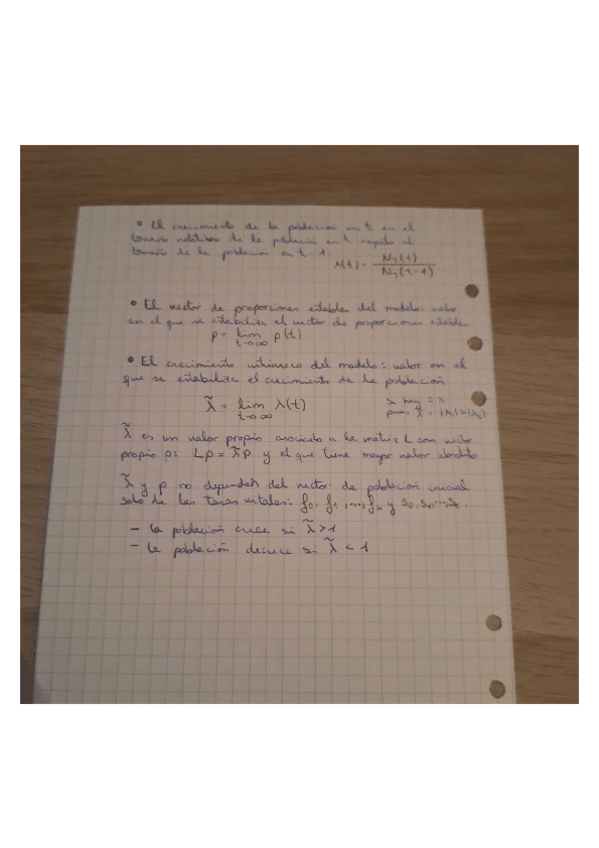 • El crecimiento de la población en t es el
tamaño relativo de la población en t respecto al
tamaño de la población en t-1:
λ(t) = N(t) / N(t-1)
• El vector de proporciones estables del modelo: valor
en el que se estabiliza el vector de proporciones estables
p = lim t→∞ p(t)
• El crecimiento intrínseco del modelo: valor en el
que se estabiliza el crecimiento de la población
λ̃ = lim t→∞ λ(t)
si hay 2 λ
pues λ̃ = |λ₁|>|λ₂|
λ̃ es un valor propio asociado a la matriz L con vector
propio p: Lp = λ̃p y el que tiene mayor valor absoluto
λ̃ y p no dependen del vector de población inicial
solo de las tasas vitales: f₀, f₁, ..., fₖ y s₀, s₁, ...
- la población crece si λ̃>1
- la población decrece si λ̃ < 1